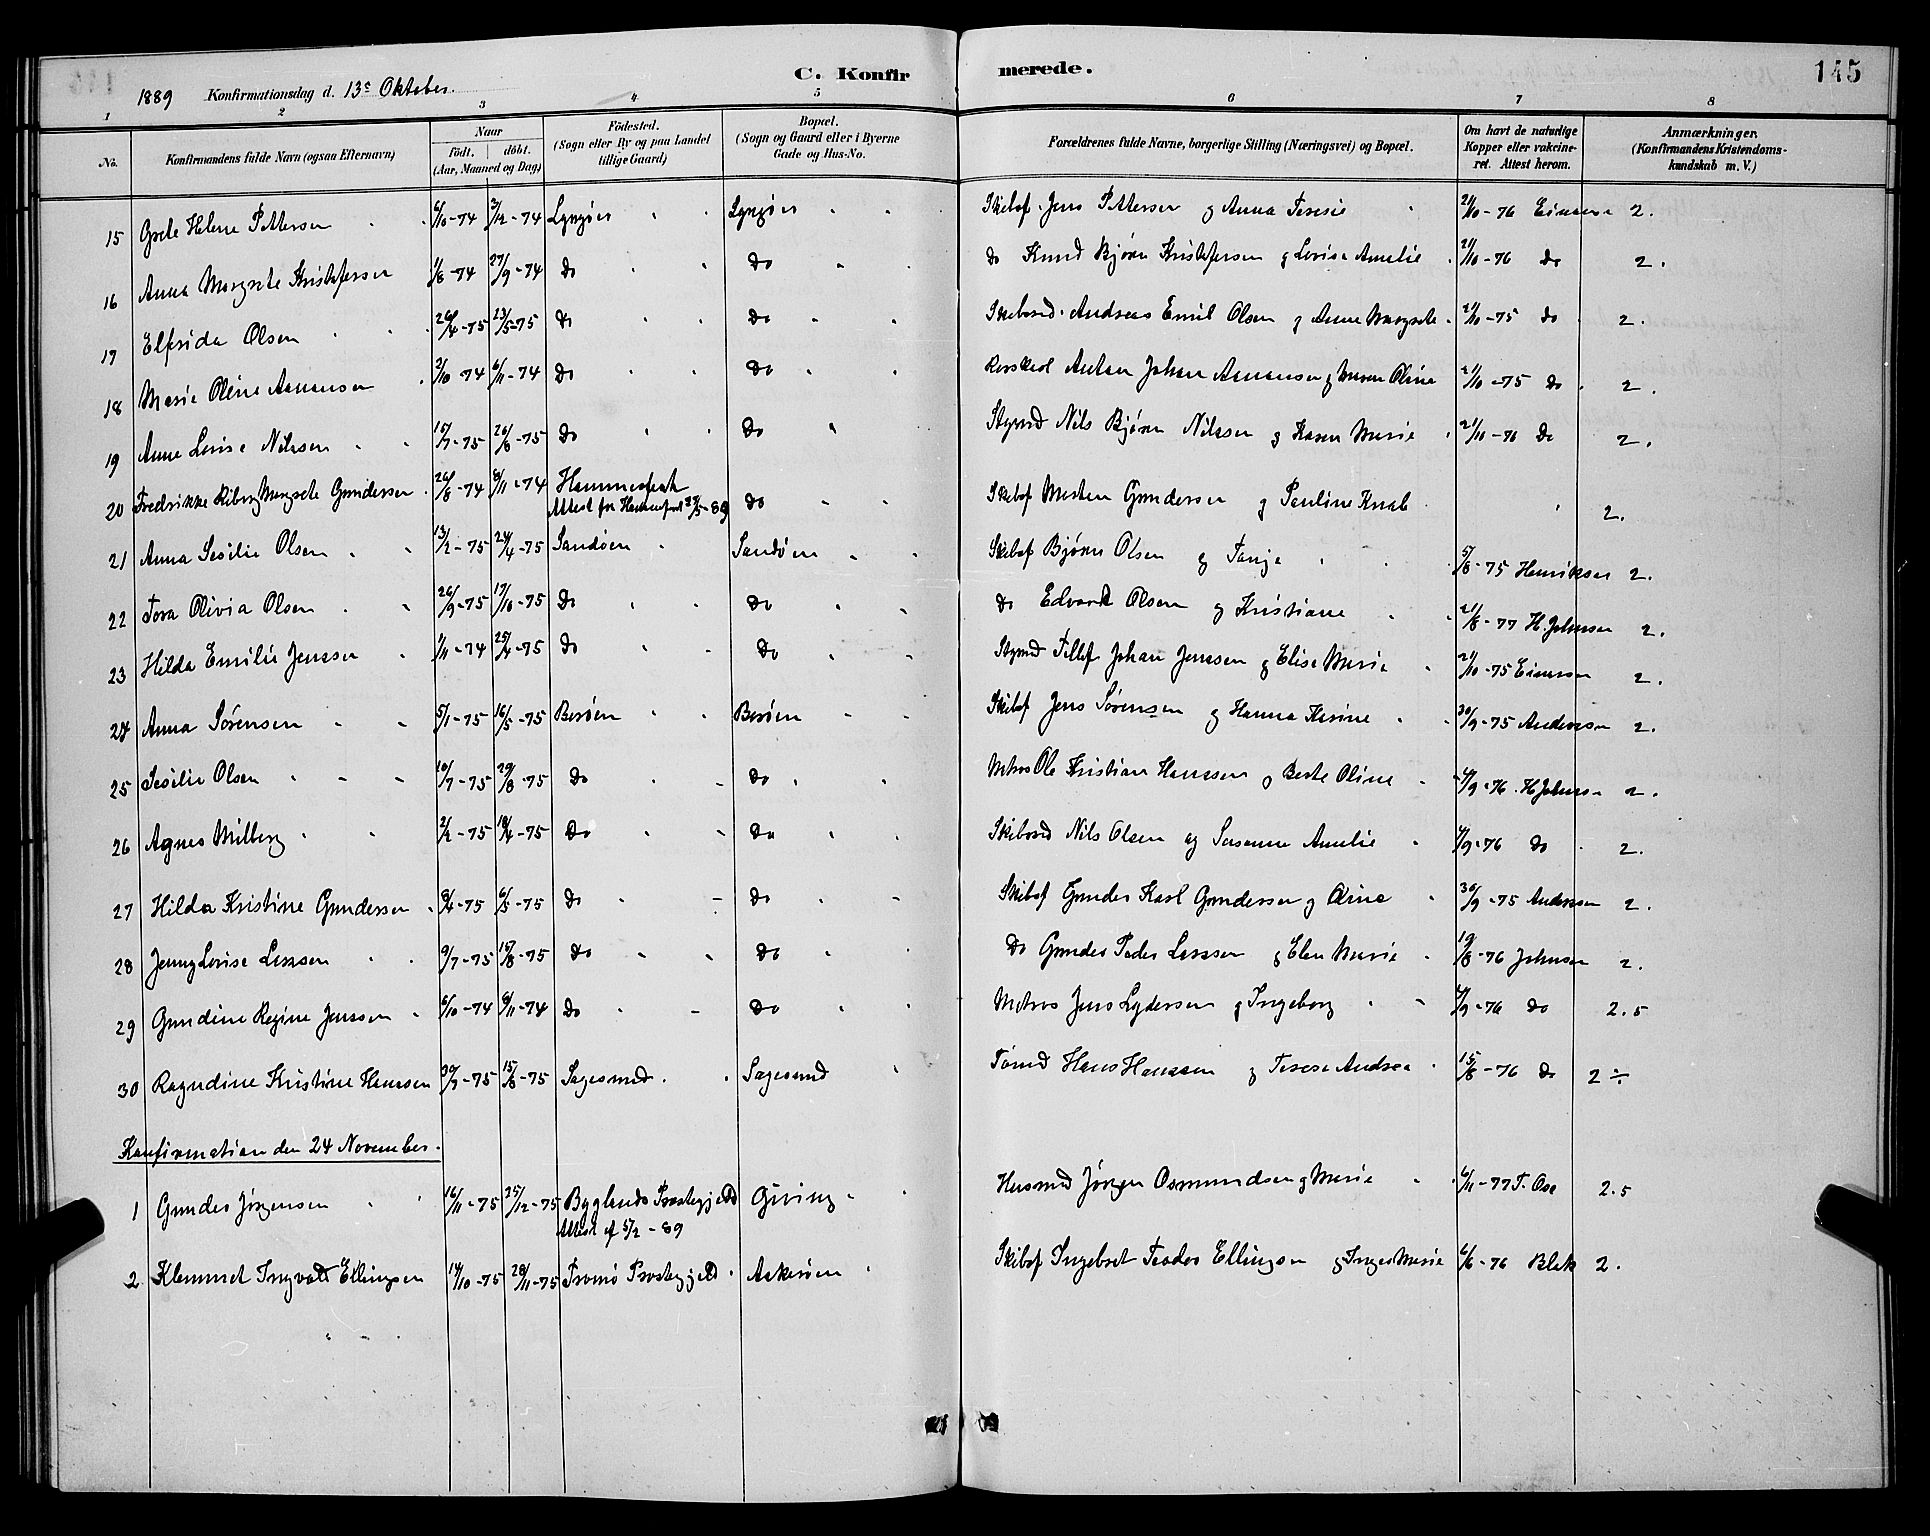 C. Konfirmerede. 145
1889 Konfirmationsdag d. 13e Oktober.
1 2 3 4 5 6 7 8
No. Konfirmandens fulde Navn (ogsaa Efternavn) Naar Födt. döbt. (Aar, Maaned og Dag) Födested. (Sogn eller By og paa Landet tillige Gaard) Bopæl. (Sogn og Gaard eller i Byerne Gade og Hus-No. Forældrenes fulde Navne, borgerlige Stilling (Næringsvei) og Bopæl. Om havt de naturlige Kopper eller vakcineret. Attest herom. Anmærkninger. (Konfirmandens Kristendomskundskab m. V.)
15 Grete Helene Pettersen 6/10-74 3/12-74 Lyngör Lyngör Skibsf. Jens Pettersen og Anna Teresie 21/10-76 Einersen 2.
16 Anna Margrete Kristofersen 1/8-74 27/9-74 do do do Knud Bjørn Kristofersen g Lovise Amelie 21/10-76 do 2.
17 Elfrida Olsen 26/4-75 23/5-75 do do Skibsred. Andreas Emil Olsen g Anne Margrete 21/10-75 do 2.
18 Marie Oline Aanonsen 2/10-74 6/11-74 do do Anton Johan Aanonsen g Maren Oline 21/10-75 do 2.
19 Anne Lovise Nilssen 15/7-75 26/8-75 do do Styrmd Nils Bjørn Nilssen g Karen Marie 21/10-76 do 2.
20 Fredrikke Riberg Margrete Gundersen 26/8-74 8/11-74 Hammerfest do Skibsf Morten Gundersen g Pauline Knab 2.
Attest fra Hammerfest -89
21 Anna Sesilie Olsen 13/2-75 24/4-75 Sandöen Sandöen Skibsf Bjørn Olsen g Tanja 5/8-75 Henriksen 2.
22 Tora Olivia Olsen 26/9-75 17/10-75 do do do Edvard Olsen g Kristiane 21/8-77 H. Johnsen 2.
23 Hilda Emilie Jenssen 1/11-74 25/4-75 do do Styrmd Tellef Johan Jenssen g Elise Marie 21/10-75 Einersen 2.
24 Anna Sörensen 5/1-75 16/5-75 Boröen Boröen Skibsf Jens Sörensen g Hanna Karine 30/9-75 Andersen 2.
25 Sesilie Olsen 10/7-75 29/8-75 do do Matros Ole Kristian Hanssen g Berte Oline 4/9-76 H Johnsen 2.
26 Agnes Milberg 2/2-75 18/4-75 do do Skibsred Nils Olsen og Susanne Amelie 4/9-76 do 2.
27 Hilda Kristine Gundersen 8/4-75 6/5-75 do do Skibsf Gunder Karl Gundersen g Oline 30/9-75 Andersen 2.
28 Jenny Lovise Larssen 9/7-75 15/8-75 do do do Gunder Peder Larssen g Elen Marie 19/8-76 Johnsen 2.
29 Gundine Regine Jenssen 6/10-74 8/11-74 do do Matros Jens Lydersen g Ingeborg 4/9-76 do 2.5
30 Ragndine Kristine Hanssen 30/7-75 15/8-75 Sagesund Sagesund Tömd Hans Hanssen g Terese Andrea 15/8-76 do 2 ÷
Konfirmation den 24 November.
1 Gunder Jörgensen 16/11-75 25/12-75 Byglands Prestegjeld Giving Husmd Jörgen Osmundsen g Marie 6/11-77 T. Ose 2.5
Attest af 5/2-89
2 Klemmet Ingvald Ellingsen 14/10-75 28/11-75 Tromö Prestegjeld Askeröen Skibsf Ingebret Teodor Ellingsen g Inger Marie 6/6-76 Blek 2.